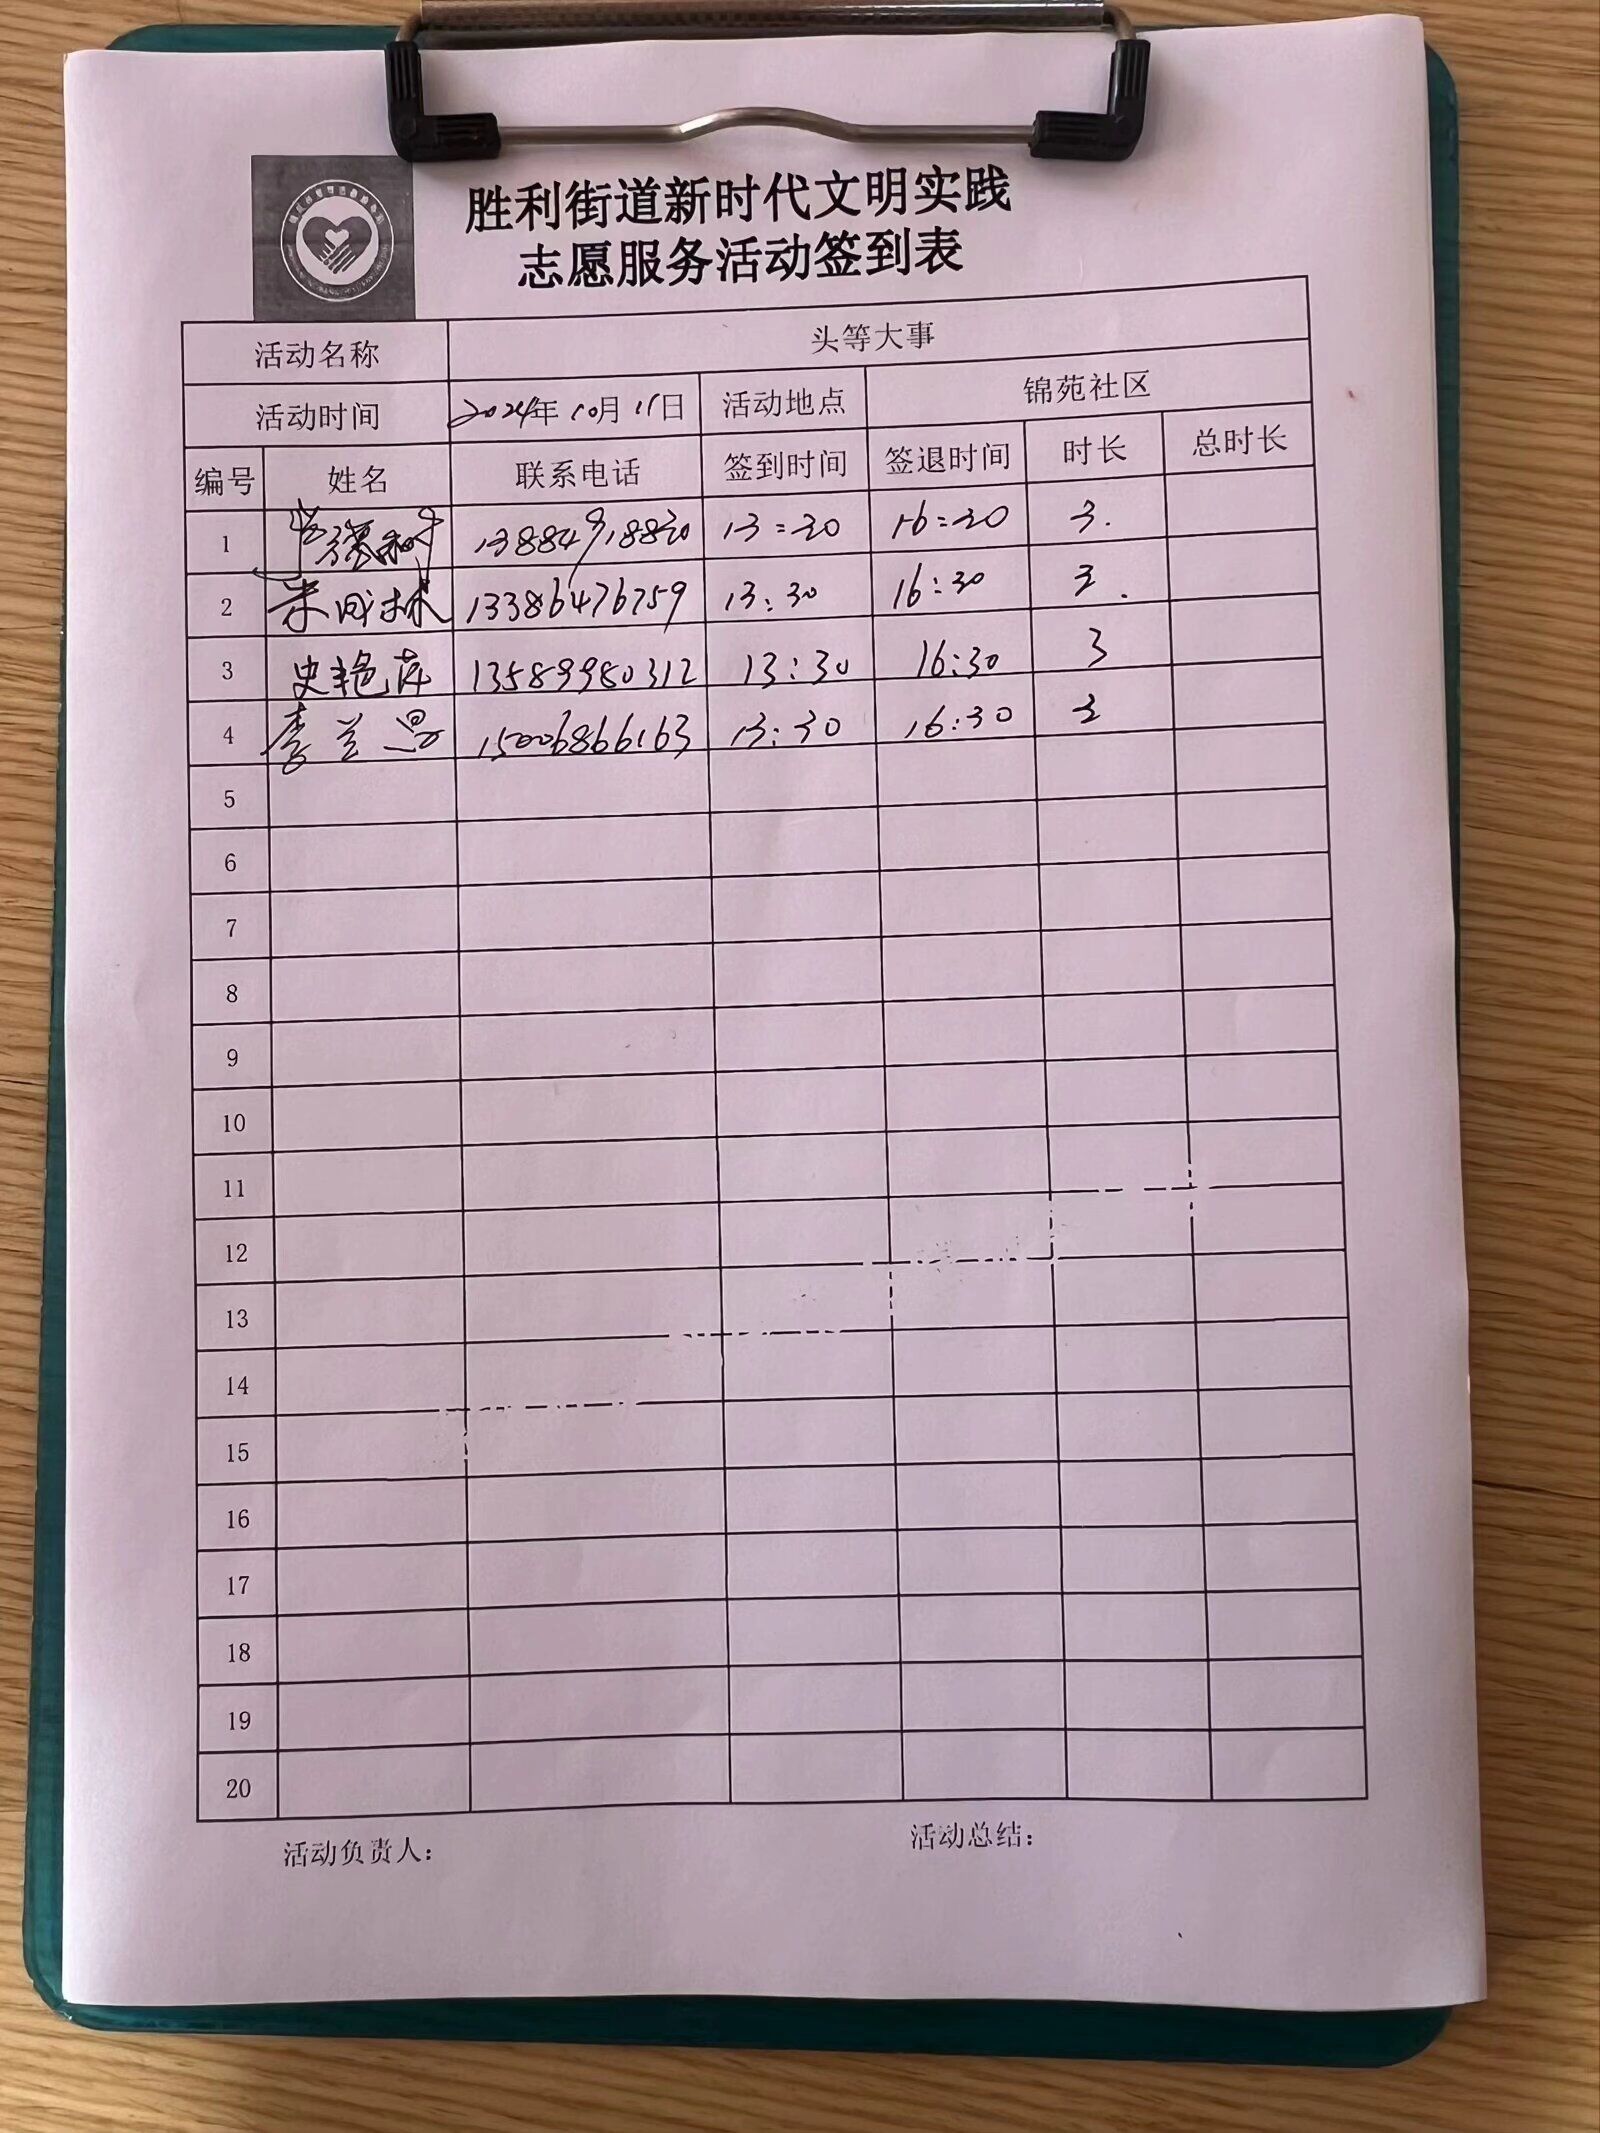 胜利街道新时代文明实践
志愿服务活动签到表
活动名称 头等大事
活动时间 2024年10月15日 活动地点 锦苑社区
编号 姓名 联系电话 签到时间 签退时间 时长 总时长
1 13884918820 13:30 16:30 3.
2 朱成林 13386476759 13:30 16:30 3.
3 史艳萍 13589980312 13:30 16:30 3
4 李兰 15006866163 13:30 16:30 3
5
6
7
8
9
10
11
12
13
14
15
16
17
18
19
20
活动负责人： 活动总结：